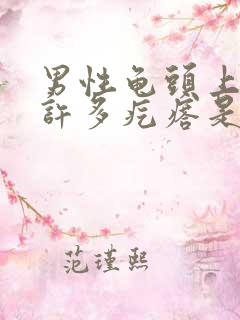 男性龟頭上
許多疙瘩是
范瑾熙